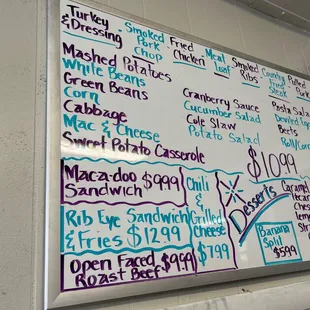 Turkey & Dressing
Smoked Pork Chop
Fried Chicken
Meat Loaf
Smoked Ribs
Country Fried Steak
Pulled Pork
Mashed Potatoes
White Beans
Green Beans
Corn
Cabbage
Mac & Cheese
Sweet Potato Casserole
Cranberry Sauce
Cucumber Salad
Cole Slaw
Potato Salad
Pasta Sala
Deviled
Beets
Roll/Cor
$10.99
Maca-doo $9.99
Sandwich
Rib Eye Sandwich
& Fries $12.99
Open Faced $9.99
Roast Beef
Chili
&
Grilled
Cheese
$7.99
Desserts
Caramel
Banana
Split
$5.99